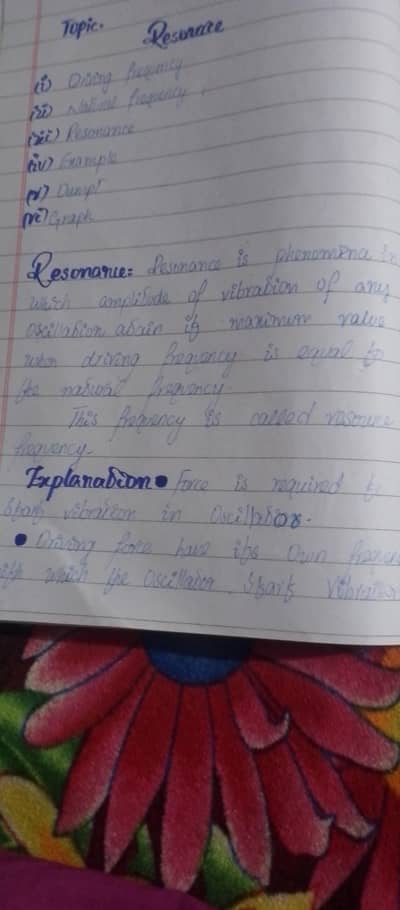 Topic. Resonance
(i) Driving frequency
(ii) Natural frequency.
(iii) Resonance
(iv) Example
(v) Dump!
(vi) Graph
Resonance: Resonance is phenomena in
which amplitude of vibration of any
oscillation abain it maximum value
when driving frequency is equal to
the natural frequency.
This frequency is called resonance
frequency.
Explanation Force is required to
Start vibration in Oscillator.
• Driving force have its own
with which the Oscillation Start Vibration